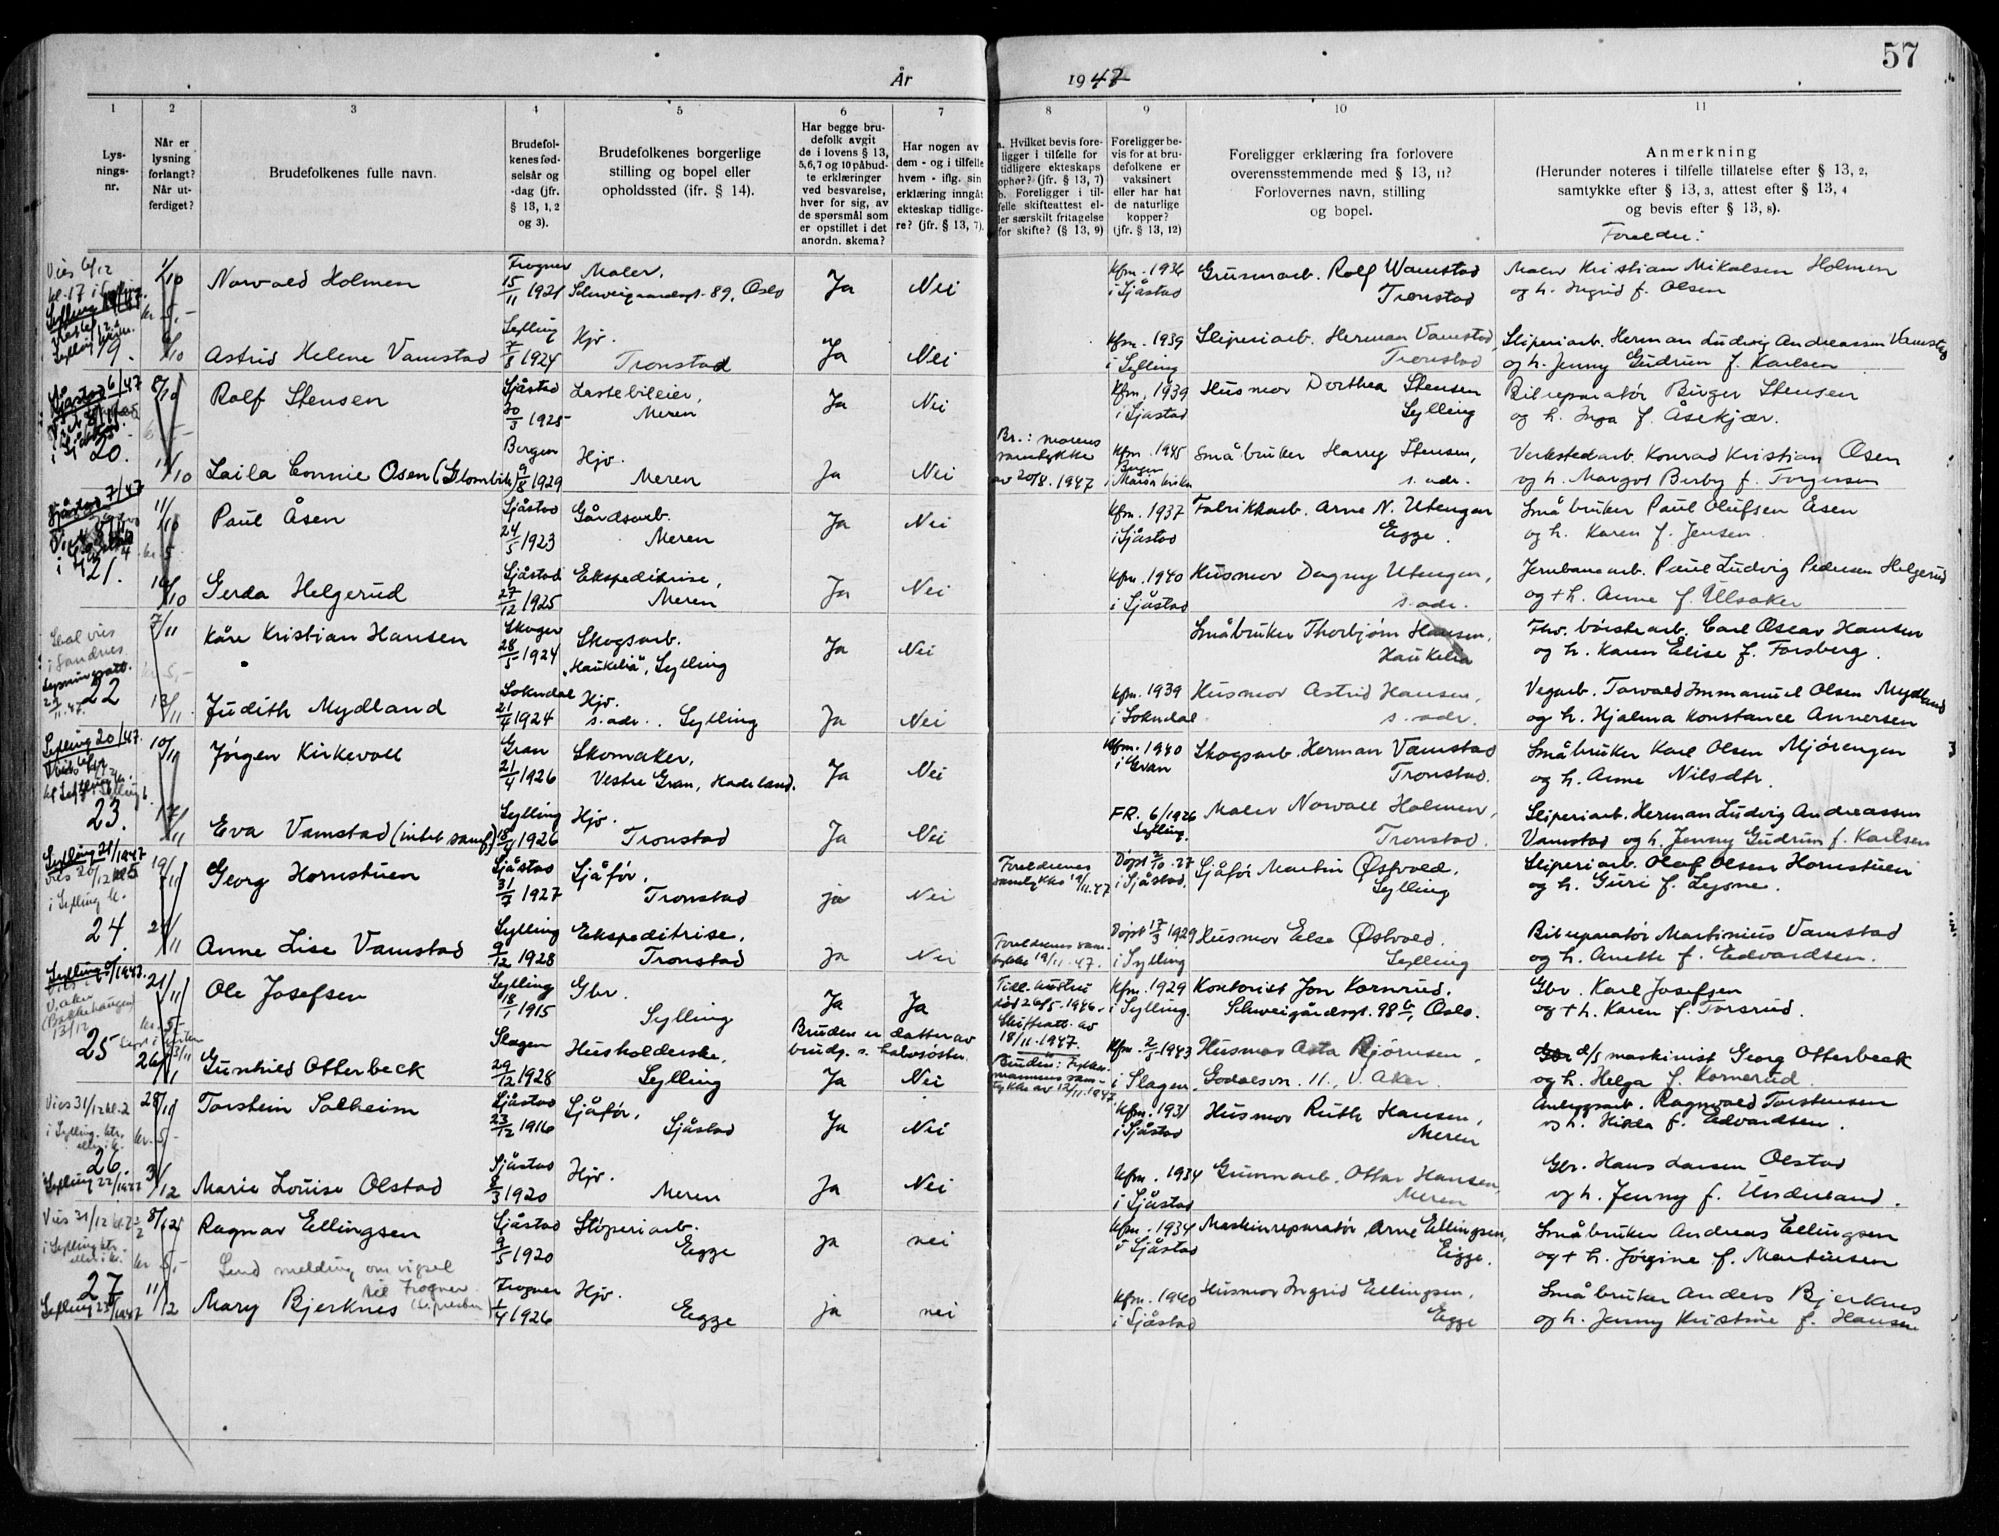 57
År 1947
1 2 3 4 5 6 7 8 9 10 11
Lys-
nings-
nr.
Når er
lysning
forlangt?
Når ut-
ferdiget?
Brudefolkenes fulle navn.
Brudefol-
kenes fød-
selsår og
-dag (jfr.
§ 13, 1, 2
og 3).
Brudefolkenes borgerlige
stilling og bopel eller
opholdssted (jfr. § 14).
Har begge bru-
defolk avgit
de i lovens § 13,
5,6,7 og 10 påbud-
te erklæringer
ved besvarelse,
hver for sig, av
de spørsmål som
er opstillet i det
anordn. skema?
Har nogen av
dem - og i tilfelle
hvem - iflg. sin
erklæring inngåt
ekteskap tidlige-
re? (jfr. § 13, 7).
a. Hvilket bevis fore-
ligger i tilfelle for
tidligere ekteskaps
ophør? (jfr. § 13, 7)
b. Foreligger i til-
felle skifteattest el-
ler særskilt fritagelse
for skifte? (§ 13, 9)
Foreligger be-
vis for at bru-
defolkene er
vaksinert
eller har hat
de naturlige
kopper?
(jfr. § 13, 12)
Foreligger erklæring fra forlovere
overensstemmende med § 13, 11?
Forlovernes navn, stilling
og bopel.
Anmerkning
(Herunder noteres i tilfelle tillatelse efter § 13, 2,
samtykke efter § 13, 3, attest efter § 13, 4
og bevis efter § 13, 8).
Foreldre:
Vies 6/12
kl. 17 i
1/10 Norvald Holmen Frogner 15/11 1921 Maler, Schweigaardsgt. 89, Oslo Ja Nei Kfm. 1936 i Sjåstad Grusmarb. Rolf Vamstad Tronstad Maler Kristian Mikalsen Holmen
og h. Ingrid f. Olsen
kr. 5,-
19. 9/10 Astrid Helene Vamstad Sylling 7/8 1924 Hjv. Tronstad Ja Nei Kfm. 1939 i Sylling Sliperiarb. Herman Vamstad, Tronstad Sliperiarb. Herman Ludvig Andreassen Vamstad
og h. Jenny Gudrun f. Karlsen
Sjåstad 6/47
8/10 Rolf Stensen Sjåstad 30/3 1925 Lastebileier, Meren Ja Nei Kfm. 1939 i Sjåstad Husmor Dorthea Stensen Sylling Bilreparatør Birger Stensen
og h. Inga f. Åsekjær.
20. 11/10 Laila Connie Osen (Glombik) Bergen 9/8 1929 Hjv. Meren Ja Nei Br.: morens
samtykke
av 20/8. 1947 Kfm. 1945 Bergen Maria kirke Småbruker Harry Stensen, s. adr. Verkstedarb. Konrad Kristian Osen
og h. Margot Berby f. Torgersen
Sjåstad 7/47
11/10 Paul Åsen Sjåstad 24/5 1923 Gårdsarb. Meren Ja Nei Kfm. 1937 i Sjåstad Fabrikkarb. Arne N. Utengen Egge. Småbruker Paul Olufsen Åsen
og h. Karen f. Jensen.
kr. 5
21. 16/10 Gerda Helgerud Sjåstad 27/12 1925 Ekspeditrise, Meren Ja Nei Kfm. 1940 i Sjåstad Husmor Dagny Utengen, s. adr. Jernbanearb. Paul Ludvig Pedersen Helgerud
og + h. Anne f. Ulsaker
Skal vies
i Sandnes
7/11 Kåre Kristian Hansen Skoger 28/5 1924 Skogsarb. "Haukelia", Sylling Ja Nei Småbruker Thorbjørn Hansen, Haukelia Fhv. børstearb. Carl Oscar Hansen
og h. Karen Elise f. Forsberg.
Lysningsatt.
kr. 5,-
22 13/11 Judith Mydland Sokndal 21/4 1924 Hjv. s. adr. Sylling Ja Nei Kfm. 1939 i Sokndal Husmor Astrid Hansen, s. adr. Vegarb. Torvald Immanuel Olsen Mydland
og h. Hjalma Konstance Annersen
Sylling 20/47
10/11 Jørgen Kirkevoll Gran 21/4 1926 Skomaker, Vestre Gran, Hadeland. Ja Nei Kfm. 1940 i Gran Skogsarb. Herman Vamstad Tronstad. Småbruker Karl Olsen Mjørengen
og h. Anne Nilsdtr.
23. 17/11 Eva Vamstad (intet samf) Sylling 18/4 1926 Hjv. Tronstad Ja Nei FR. 6/1926 Sylling. Maler Norvall Holmen, Tronstad. Sliperiarb. Herman Ludvig Andreassen
Vamstad og h. Jenny Gudrun f. Karlsen
Sylling 21/1947
Vies 26/12
i Sylling k.
19/11 Georg Hornstuen Sjåstad 31/7 1927 Sjåfør, Tronstad ja Nei Foreldrenes
samtykke 19/11.47 Døpt 2/10. 27 i Sjåstad. Sjåfør Martin Østvold, Sylling Sliperiarb. Olaf Olsen Hornstuen
og h. Guri f. Lysne.
24. 24/11 Anne Lise Vamstad Sylling 9/12 1928 Ekspeditrise, Tronstad Ja Nei Foreldrenes sam-
tykke 19/11. 47. Døpt 17/3 1929 i Sylling Husmor Else Østvold. Sylling Bilreparatør Martinius Vamstad
og h. Anette f. Edvardsen.
V. Aker
(Bakkehaugen)
13/12
21/11 Ole Josefsen Sylling 18/1 1915 Gbr. Sylling Ja Ja Tidl. hustru
død 26/5. 1946.
Skifteatt. av
18/11. 1947. Kfm. 1929 i Sylling. Kontorist Jon Kornrud, Schweigårdsgt. 98 b, Oslo. Gbr. Karl Josefsen
og + h. Karen f. Torsrud.
kr. 5,-
Bruden er datter av
brudg. s. halvsøster.
25 26/11 Gunhild Otterbeck Slagen 29/12 1928 Husholderske, Sylling Ja Nei Bruden: Fylkes-
mannens sam-
tykke av 12/11. 1947 Kfm. 2/5 1943 i Slagen Husmor Asta Bjørnsen, Godalsvn. 11, V. Aker. d/s maskinist Georg Otterbeck
og h. Helga f. Kornerud.
Vies 31/12 kl. 2
i Sylling. ktr.
eller i k.
28/11 Torstein Solheim Sjåstad 23/12 1916 Sjåfør, Sjåstad Ja Nei Kfm. 1931 i Sjåstad Husmor Ruth Hansen, Meren Anleggsarb. Ragnvald Torstensen
og h. Hilda f. Edvardsen.
kr. 5-
26. 3/12 Marie Louise Olstad Sjåstad 8/3 1920 Hjv. Meren Ja Nei Kfm. 1934 i Sjåstad Grusmarb. Ottar Hansen, Meren Gbr. Hans Larsen Olstad
og h. Jenny f. Underland.
Sylling 22/1947
Vies 31/12 kl. 2 1/2
i Sylling ktr.
eller i k.
8/12 Ragnar Ellingsen Sjåstad 9/5 1920 Støperiarb. Egge ja nei Kfm. 1934 i Sjåstad Maskinreparatør Arne Ellingsen, Egge. Småbruker Andreas Ellingsen
og + h. Jørgine f. Martinsen
kr. 5,-
Send melding om vigsel
til Frogner
27 11/12 Mary Bjerknes Frogner 1/4 1926 Hjv. Egge ja nei Kfm. 1940 i Sjåstad Husmor Ingrid Ellingsen, Egge Småbruker Anders Bjerknes
og h. Jenny Kristine f. Hansen
Sylling 23/1947